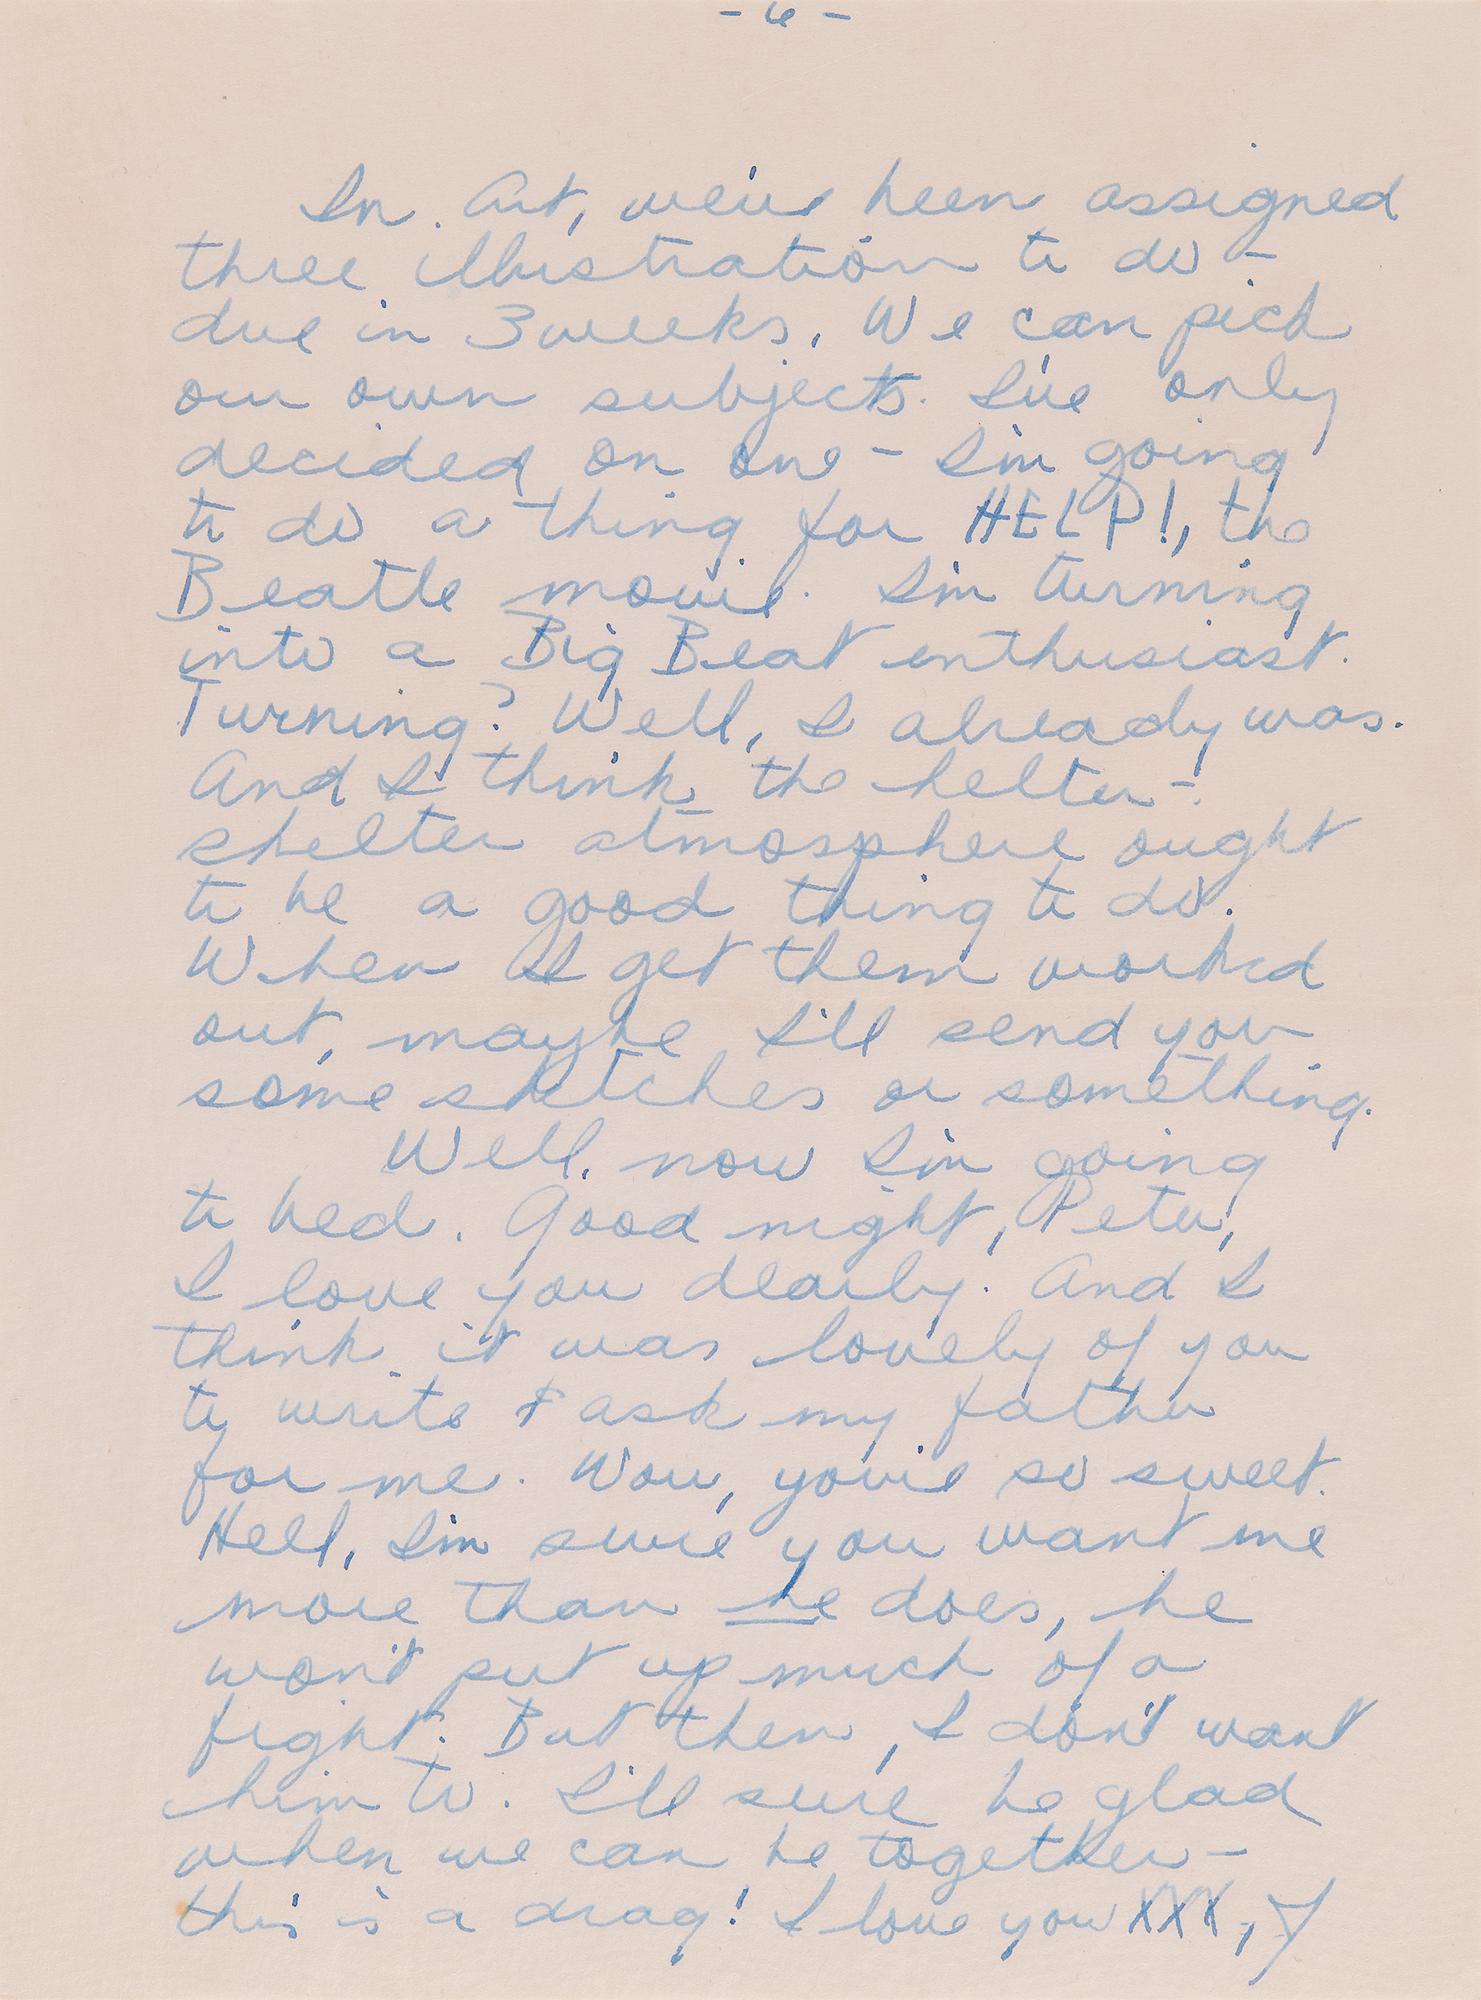 - 6 -
In Art, we've been assigned
three illustration to do -
due in 3 weeks. We can pick
our own subjects. I've only
decided on one - I'm going
to do a thing for HELP!, the
Beatle movie. I'm turning
into a Big Beat enthusiast.
Turning? Well, I already was.
And I think the helter-
skelter atmosphere ought
to be a good thing to do.
When I get them worked
out, maybe I'll send you
some sketches or something.
Well, now I'm going
to bed. Good night, Peter,
I love you dearly. And I
think it was lovely of you
to write & ask my father
for me. Wow, you're so sweet.
Hell, I'm sure you want me
more than he does, he
won't put up much of a
fight. But then, I don't want
him to. I'll sure be glad
when we can be together -
this is a drag! I love you XXX, Y